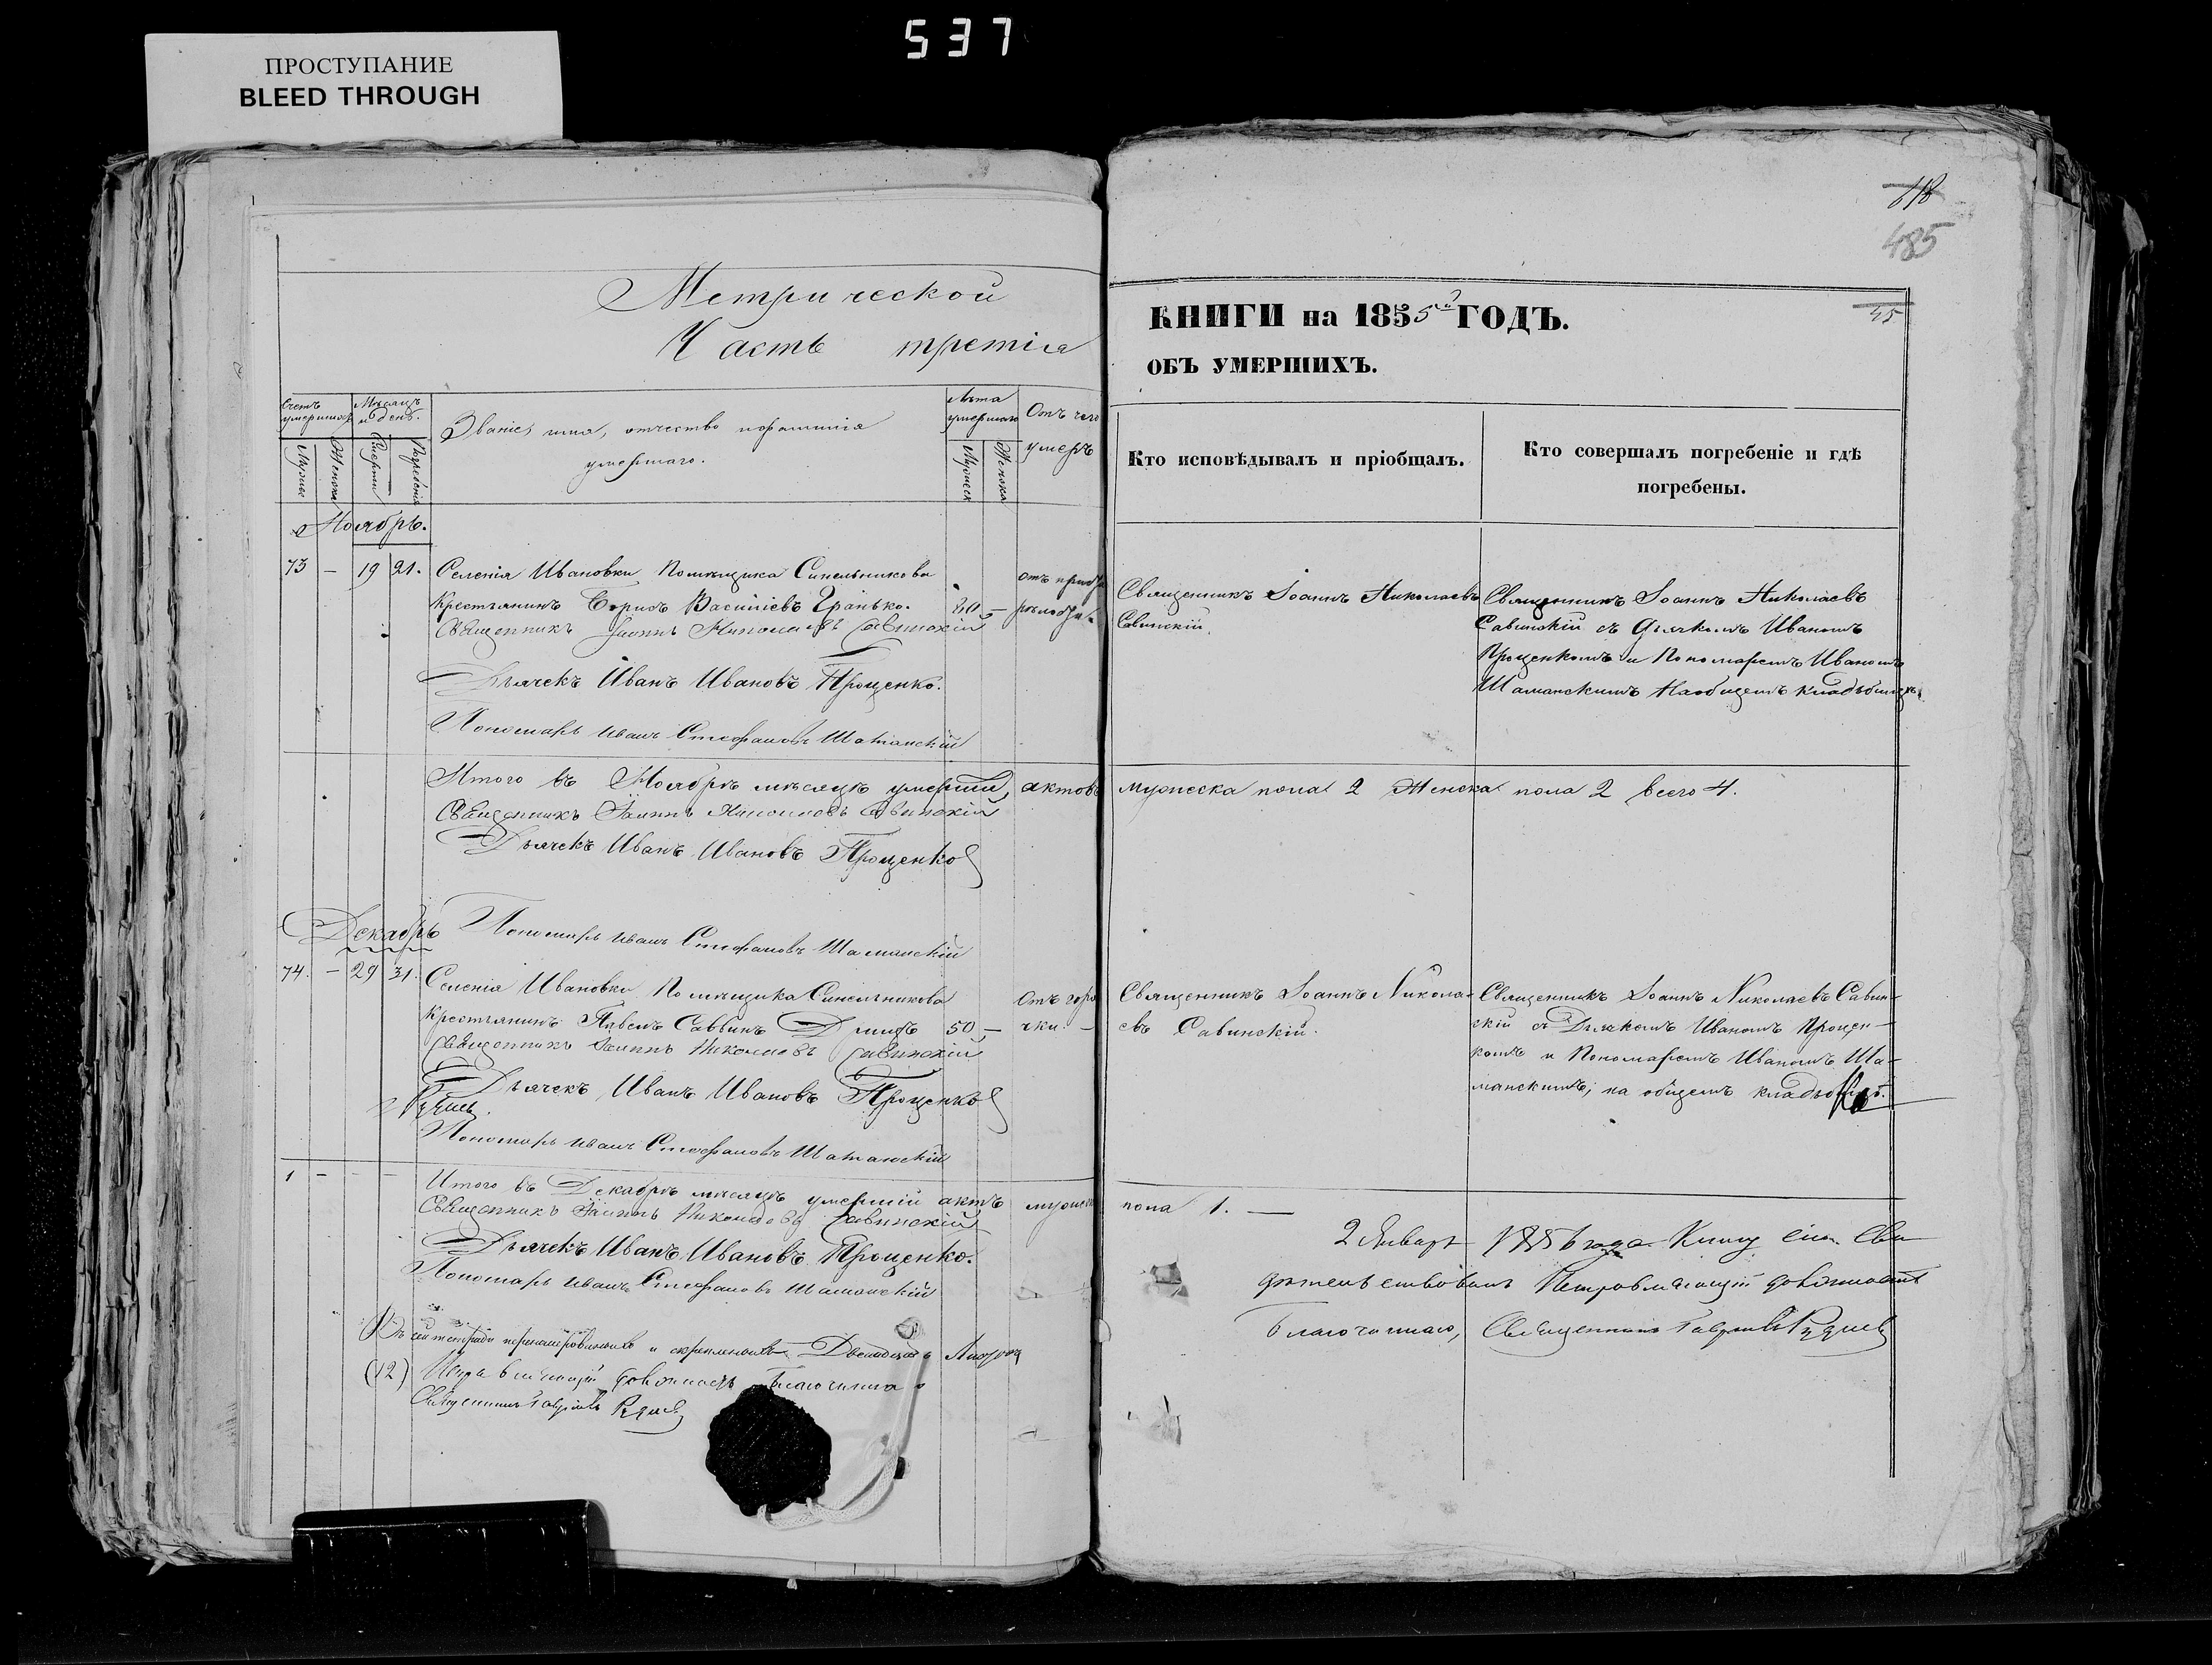 537
ПРОСТУПАНИЕ
BLEED THROUGH
485
45
Метрической
Часть третія
КНИГИ на 1855й ГОДЪ.
ОБЪ УМЕРШИХЪ.
Счетъ умершихъ
Мѣсяцъ и день.
Званіе, имя, отчество и фамилія
умершаго.
Лѣта умершаго
Отъ чего
умеръ
Кто исповѣдывалъ и пріобщалъ.
Кто совершалъ погребеніе и гдѣ
погребены.
Мужска
Женска
Смерти
Погребенія
Мужеск
Женска
Ноябрь.
73 – 19 21. Селенія Ивановки Помѣщика Синельникова
Крестьянинъ Борисъ Васильевъ Гранько. 80 –
Священникъ Іоаннъ Николаевъ Савинскій
Дьячекъ Иванъ Ивановъ Проценко.
Пономарь Иванъ Стефановъ Шаманскій
Священникъ Іоаннъ Николаевъ
Савинскій.
Священникъ Іоаннъ Николаевъ
Савинскій съ Дьячкомъ Иваномъ
Проценкомъ и Пономаремъ Иваномъ
Шаманскимъ на общемъ кладбищѣ.
Итого въ Ноябрѣ мѣсяцѣ умерший, актовъ мужеска пола 2 Женска пола 2 всего 4.
Священникъ Іоаннъ Николаевъ Савинскій
Дьячекъ Иванъ Ивановъ Проценко
Пономарь Иванъ Стефановъ Шаманскій
Декабрь
74. – 29 31. Селенія Ивановки Помѣщика Синельникова
Крестьянинъ Павелъ Саввинъ 50 –
Отъ горя
чки. –
Священникъ Іоаннъ Николаевъ Савинскій
Дьячекъ Иванъ Ивановъ Проценко
Пономарь Иванъ Стефановъ Шаманскій
Священникъ Іоаннъ Никола-
евъ Савинскій.
Священникъ Іоаннъ Николаевъ Савин-
скій съ Дьячкомъ Иваномъ Процен-
комъ и Пономаремъ Иваномъ Ша-
манскимъ; на общемъ кладбищѣ.
1 – – – Итого въ Декабрѣ мѣсяцѣ умершій актъ мужеск пола 1. —
Священникъ Іоаннъ Николаевъ Савинскій
Дьячекъ Иванъ Ивановъ Проценко.
Пономарь Иванъ Стефановъ Шаманскій
2 Января 1856 года Книгу сію Сви
дѣтельствовалъ Исправляющій должность
Благочиннаго, Священникъ Гавріилъ
Въ сей тетради перенумерованныхъ и скрѣпленныхъ Двенадцать Листовъ
(12) Исправляющій должность Благочиннаго
Священникъ Гавріилъ